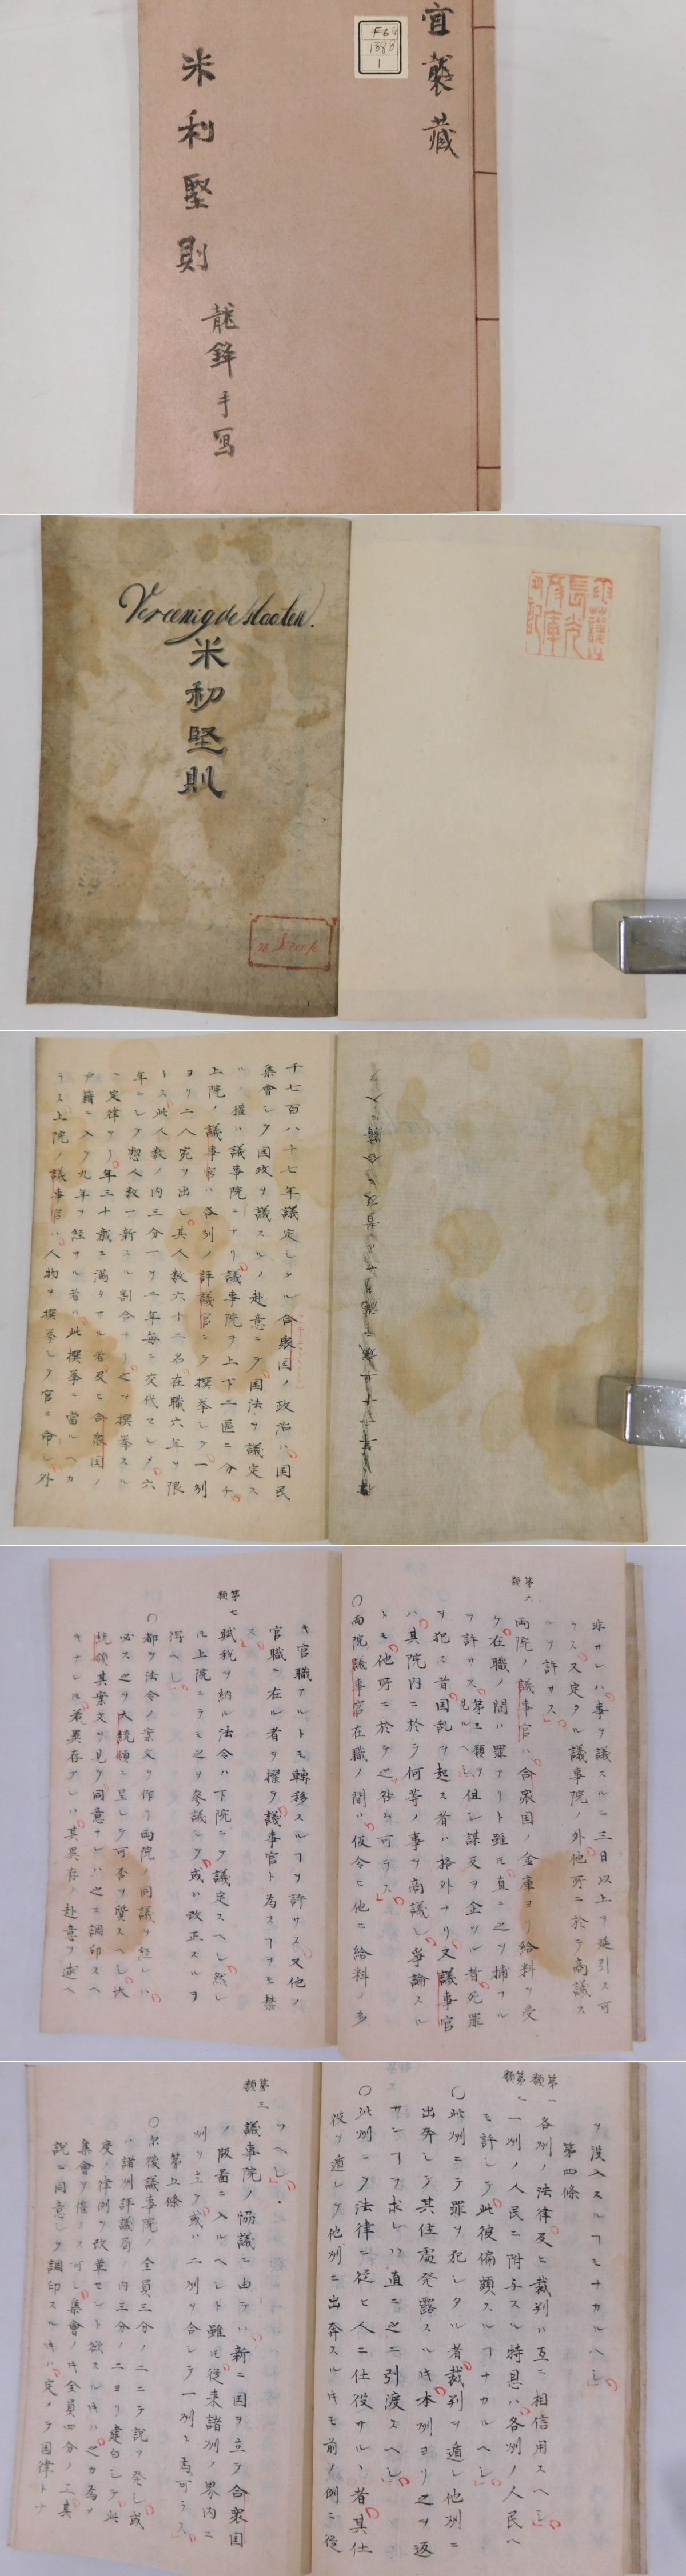 宜襲藏
F64
1888
1
米利堅則
龍鋒手写
Vereenigde Staaten.
米利堅則
千七百八十七年議定シタル合衆国ノ政治ハ国民
集會シテ国政ヲ議スルノ赴意ニテ国法ヲ議定ス
ル權ハ議事院ニアリ議事院ヲ上下二區ニ分チ
上院ノ議事官ハ各州ノ評議官ニテ撰挙シテ一州
ヨリ二人宛ヲ出し其人数六十二名在職六年ヲ限
トス此人数ノ内三分一ヲ二年毎ニ交代セシメ六
年ニシテ惣人数一新スル割合ナリ之ヲ撰挙スル
ニ定律アリ年三十歳ニ満タサル者及ヒ合衆国ノ
戸籍ニ入テ九年ヲ経サル者ハ此撰挙ニ當ルヘカ
ラス上院ノ議事官ハ人物ヲ撰挙シテ官ニ命し外
非サレハ事ヲ議スルニ三日以上ヲ延引ス可
ラス又定タル議事院ノ外他所ニ於テ商議ス
ルヲ許サス
第六類
両院ノ議事官ハ合衆国ノ金庫ヨリ給料ヲ受
ケ在職ノ間ハ罪アリト雖ヒ直ニ之ヲ捕フル
ヲ許サス第三類ヲ見ルヘシ但シ謀反ヲ企ツル者死罪
ヲ犯ス者国乱ヲ起ス者ハ格外ナリ又議事官
ハ其院内ニ於テ何等ノ事ヲ商議し爭論スル
トモ他所ニ於テ之ヲ咎ム可ラス
〇両院議事官在職ノ間ハ仮令ヒ他ニ給料ノ多
キ官職アルトモ轉移スルヿヲ許サス又他ノ
官職ニ在ル者ヲ擢テ議事官ト為スヿヲモ禁
ス
第七類
賦税ヲ納ル法令ハ下院ニテ議定スヘし然レ
ヒ上院ニテモ之ヲ参議シテ或ハ改正スルヲ
得ヘし
〇都テ法令ノ案文ヲ作リ両院ノ同議ヲ経レハ
必ス之ヲ大統領ニ呈シテ可否ヲ質スヘし大
統領其案文ヲ見テ同意ナレハ之ニ調印スヘ
キナレヒ若異存アレハ其異存ノ赴意ヲ述ヘ
ヲ没入スルヿモナカルヘし
第四條
第一類
各州ノ法律及ヒ裁判ハ互ニ相信用スヘし
第二類
一州ノ人民ニ附与スル特恩ハ各州ノ人民ヘ
モ許シテ此彼偏頗スルヿナカルヘし
〇此州ニテ罪ヲ犯シタル者裁判ヲ遁し他州ニ
出奔シテ其住處発露スルキ本州ヨリ之ヲ返
サンヿヲ求レハ直ニ之ニ引渡スヘし
〇此州ニテ法律ニ従ヒ人ニ仕役サルヽ者其仕
役ヲ遁レテ他州ニ出奔スルキモ前ノ例ニ従
フヘし
第三類
議事院ノ恊議ニ由テハ新ニ国ヲ立テ合衆国
ノ版啚ニ入ルヘシト雖ヒ従来諸州ノ界内ニ
州ヲ立テ或ハ二州ヲ合シテ一州ス為可ラス
第五條
〇尓後議事院ノ全員三分ノ二ニテ説ヲ発し或
ハ諸州評議局ノ内三分ノ二ヨリ建白シテ此
度ノ律例ヲ改革セント欲スルキハ之カ為メ
集會ヲ催ス可し集會ノキ全員四分ノ三其
説ニ同意シテ調印スルキハ定メテ国律トナ